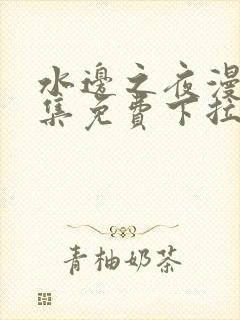 水邊之夜漫
集免費下拉
青柚奶茶